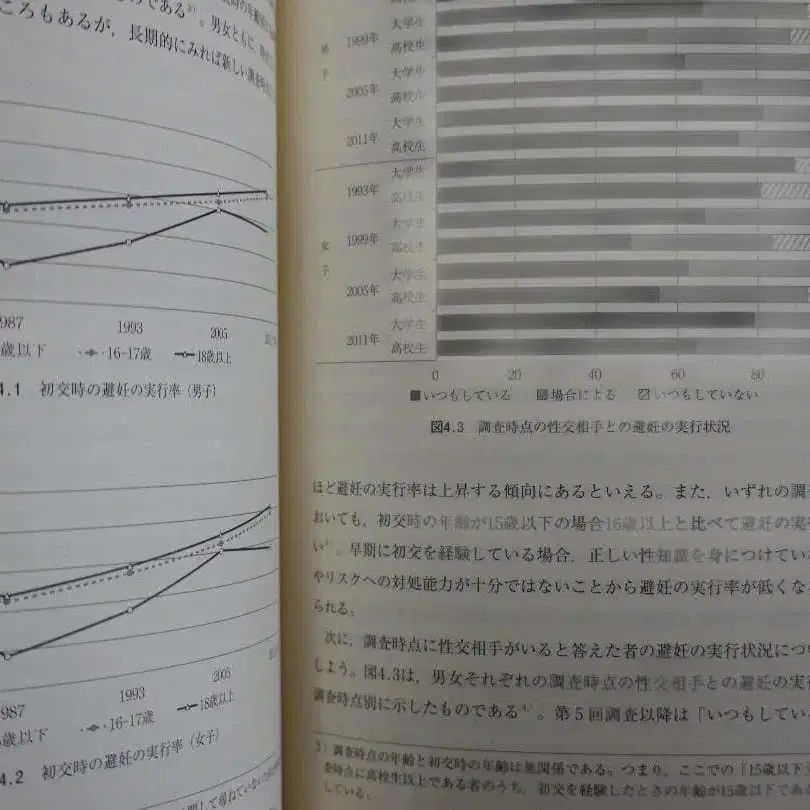 のである²⁾。男女ともに、
ころもあるが、長期的にみれば新しい調査
987 1993 2005
歳以下 16-17歳 18歳以上
4.1 初交時の避妊の実行率（男子）
987 1993 2005
歳以下 16-17歳 18歳以上
4.2 初交時の避妊の実行率（女子）
大学生
男子 1999年 高校生
大学生
2005年 高校生
大学生
2011年 高校生
大学生
1993年 高校生
大学生
女子 1999年 高校生
大学生
2005年 高校生
大学生
2011年 高校生
0 20 40 60 80
いつもしている 場合による いつもしていない
図4.3 調査時点の性交相手との避妊の実行状況
ほど避妊の実行率は上昇する傾向にあるといえる。また、いずれの調
おいても、初交時の年齢が15歳以下の場合16歳以上と比べて避妊の実
い³⁾。早期に初交を経験している場合、正しい性知識を身につけてい
やリスクへの対処能力が十分ではないことから避妊の実行率が低くな
られる。
次に、調査時点に性交相手がいると答えた者の避妊の実行状況につ
しよう。図4.3は、男女それぞれの調査時点の性交相手との避妊の実
調査時点別に示したものである⁴⁾。第5回調査以降は「いつもしてい
3）調査時点の年齢と初交時の年齢は無関係である。つまり、ここでの「15歳以下
査時点に高校生以上である者のうち、初交を経験したときの年齢が15歳以下であ
している。